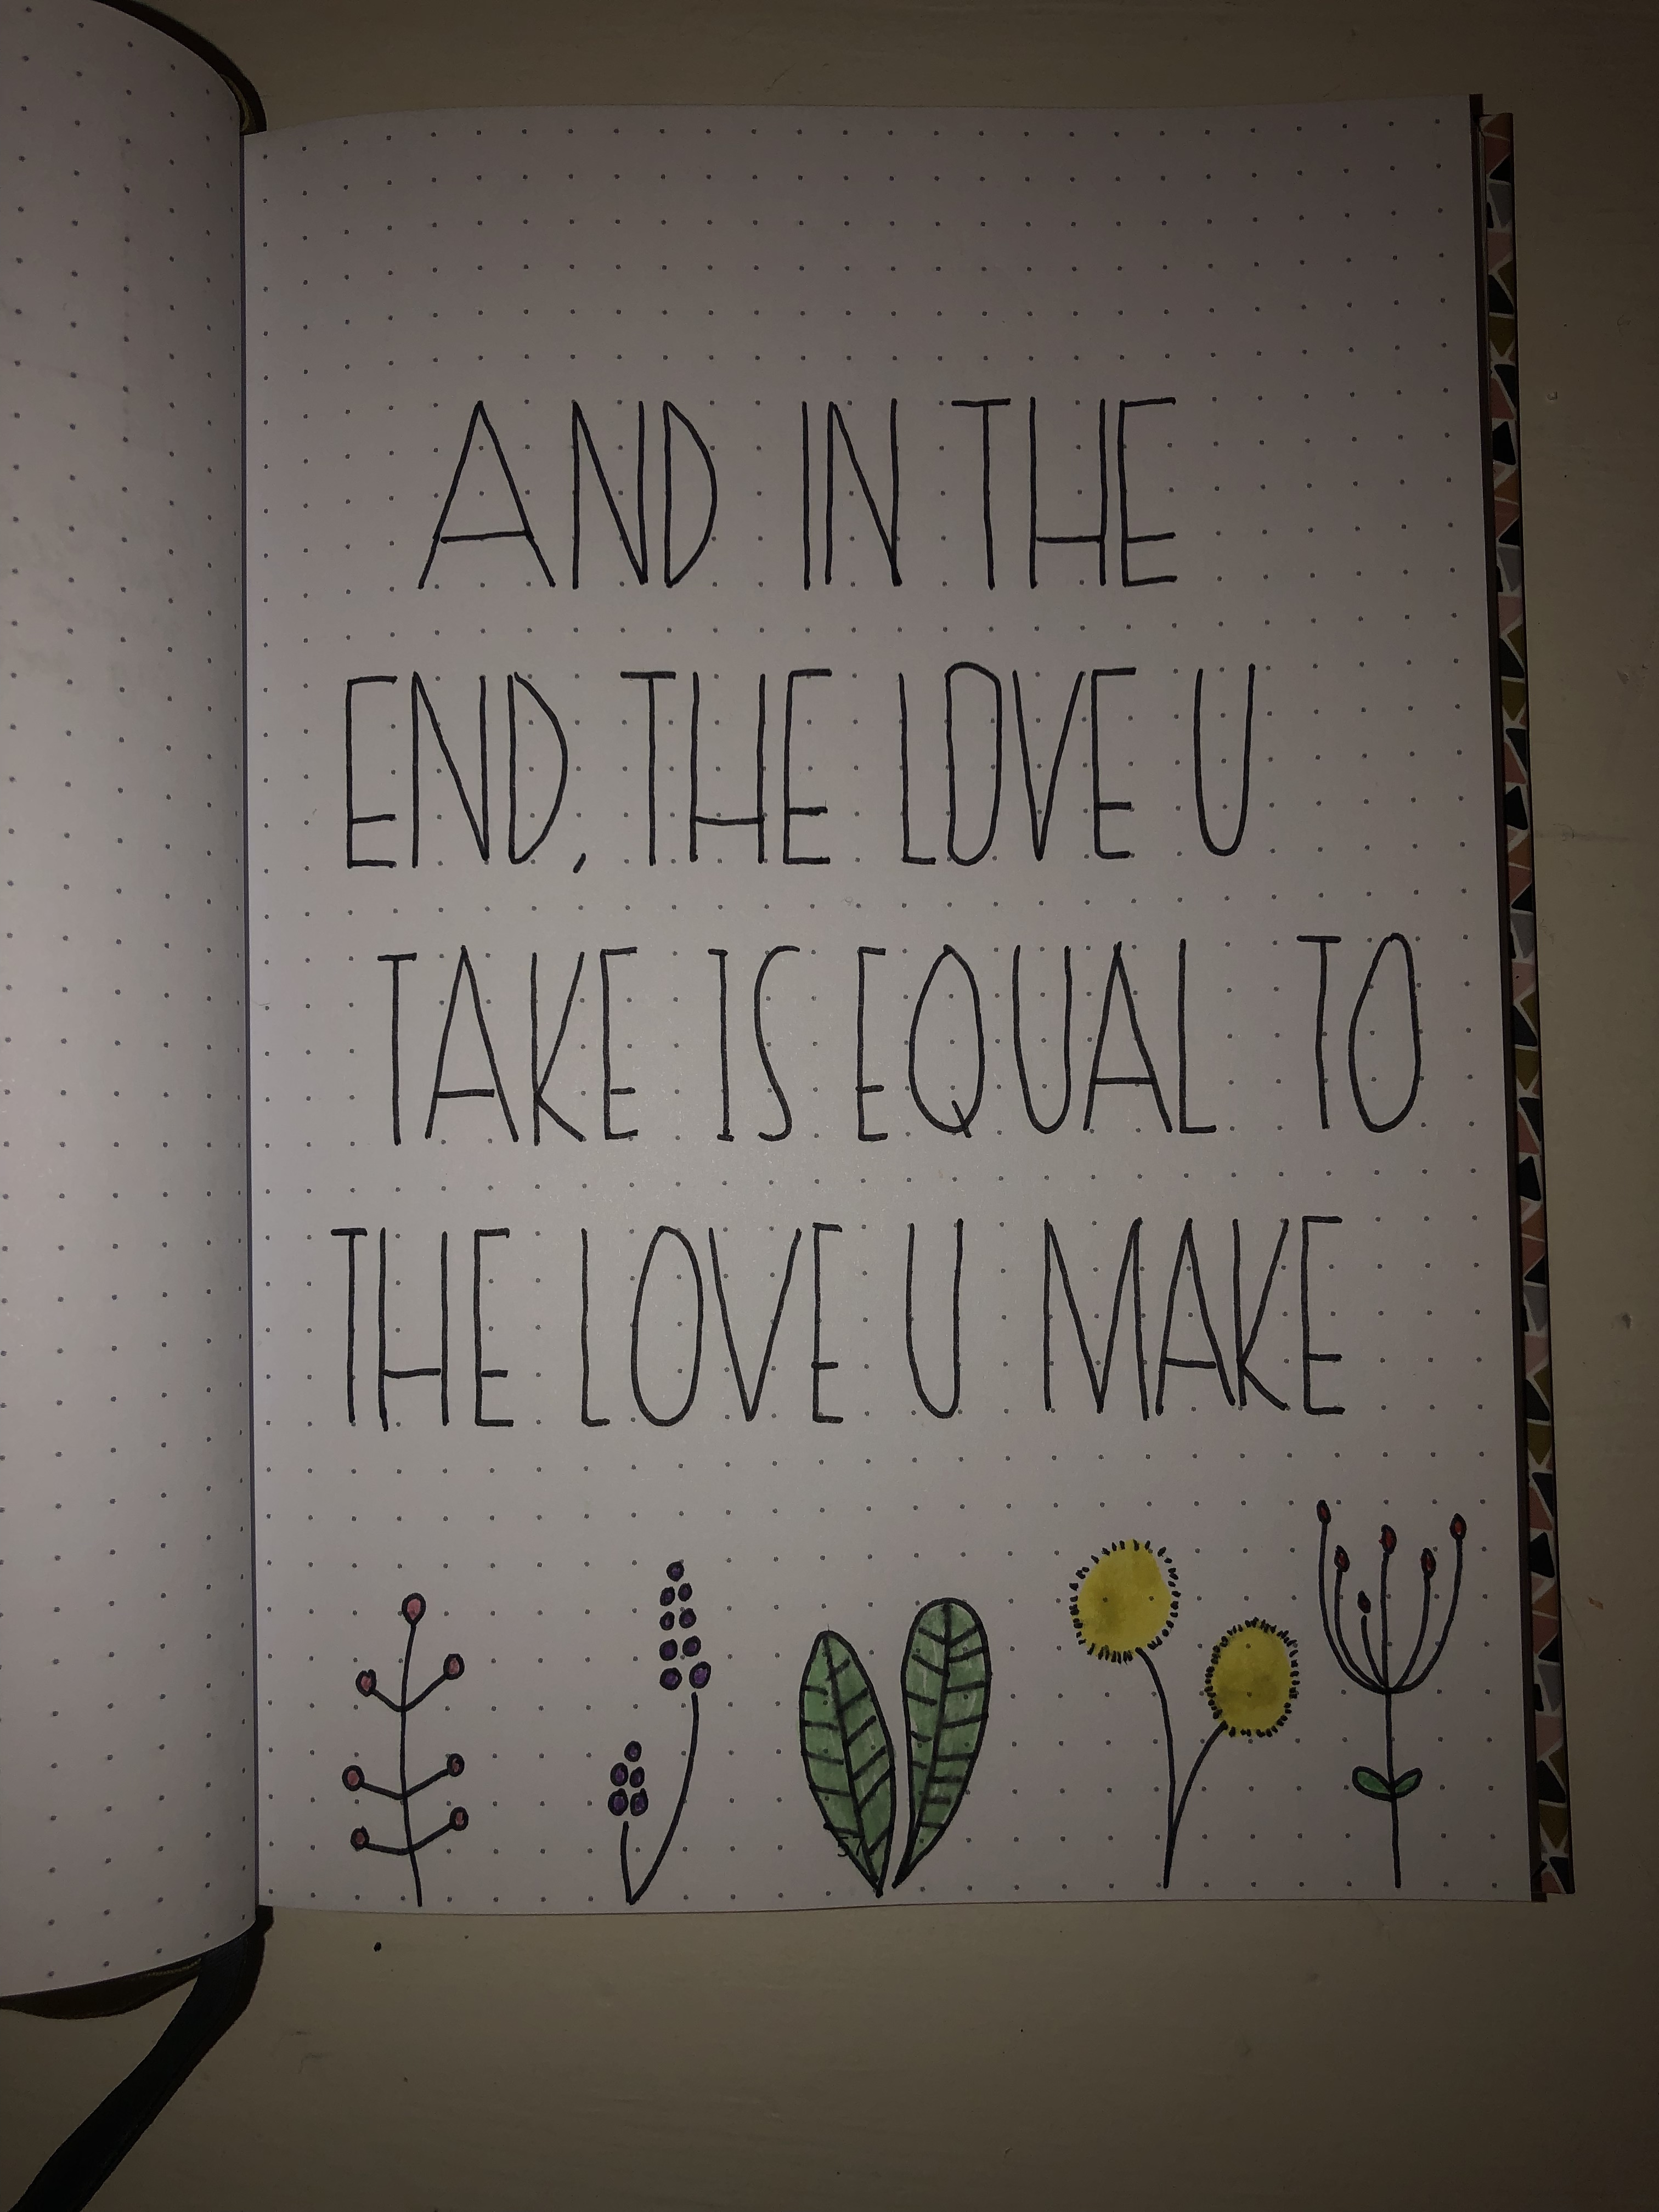 AND IN THE
END, THE LOVE U
TAKE IS EQUAL TO
THE LOVE U MAKE
57